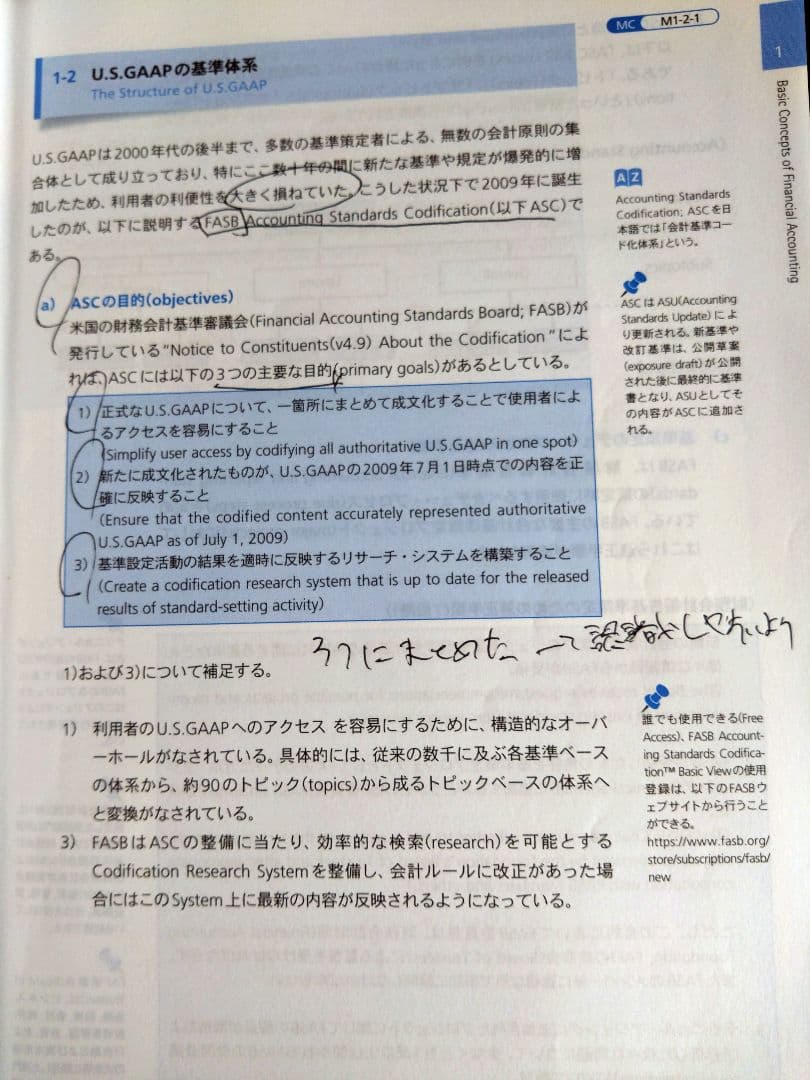 MC M1-2-1
1
Basic Concepts of Financial Accounting
1-2 U.S.GAAPの基準体系
The Structure of U.S.GAAP
U.S.GAAPは2000年代の後半まで、多数の基準策定者による、無数の会計原則の集
合体として成り立っており、特にここ数十年の間に新たな基準や規定が爆発的に増
加したため、利用者の利便性を大きく損ねていた。こうした状況下で2009年に誕生
したのが、以下に説明するFASB Accounting Standards Codification(以下ASC)で
ある。
AZ
Accounting Standards
Codification; ASCを日
本語では「会計基準コー
ド化体系」という。
a) ASCの目的(objectives)
米国の財務会計基準審議会(Financial Accounting Standards Board; FASB)が
発行している"Notice to Constituents(v4.9) About the Codification"によ
れば、ASCには以下の3つの主要な目的(primary goals)があるとしている。
ASCはASU(Accounting
Standards Update)によ
り更新される。新基準や
改訂基準は、公開草案
(exposure draft)が公開
された後に最終的に基準
書となり、ASUとしてそ
の内容がASCに追加さ
れる。
1) 正式なU.S.GAAPについて、一箇所にまとめて成文化することで使用者によ
るアクセスを容易にすること
(Simplify user access by codifying all authoritative U.S.GAAP in one spot)
2) 新たに成文化されたものが、U.S.GAAPの2009年7月1日時点での内容を正
確に反映すること
(Ensure that the codified content accurately represented authoritative
U.S.GAAP as of July 1, 2009)
3) 基準設定活動の結果を適時に反映するリサーチ・システムを構築すること
(Create a codification research system that is up to date for the released
results of standard-setting activity)
にまとめた
1)および3)について補足する。
1) 利用者のU.S.GAAPへのアクセス を容易にするために、構造的なオーバ
ーホールがなされている。具体的には、従来の数千に及ぶ各基準ベース
の体系から、約90のトピック(topics)から成るトピックベースの体系へ
と変換がなされている。
3) FASBはASCの整備に当たり、効率的な検索(research)を可能とする
Codification Research Systemを整備し、会計ルールに改正があった場
合にはこのSystem上に最新の内容が反映されるようになっている。
誰でも使用できる(Free
Access)、FASB Account-
ing Standards Codifica-
tion™ Basic Viewの使用
登録は、以下のFASBウ
ェブサイトから行うこと
ができる。
https://www.fasb.org/
store/subscriptions/fasb/
new